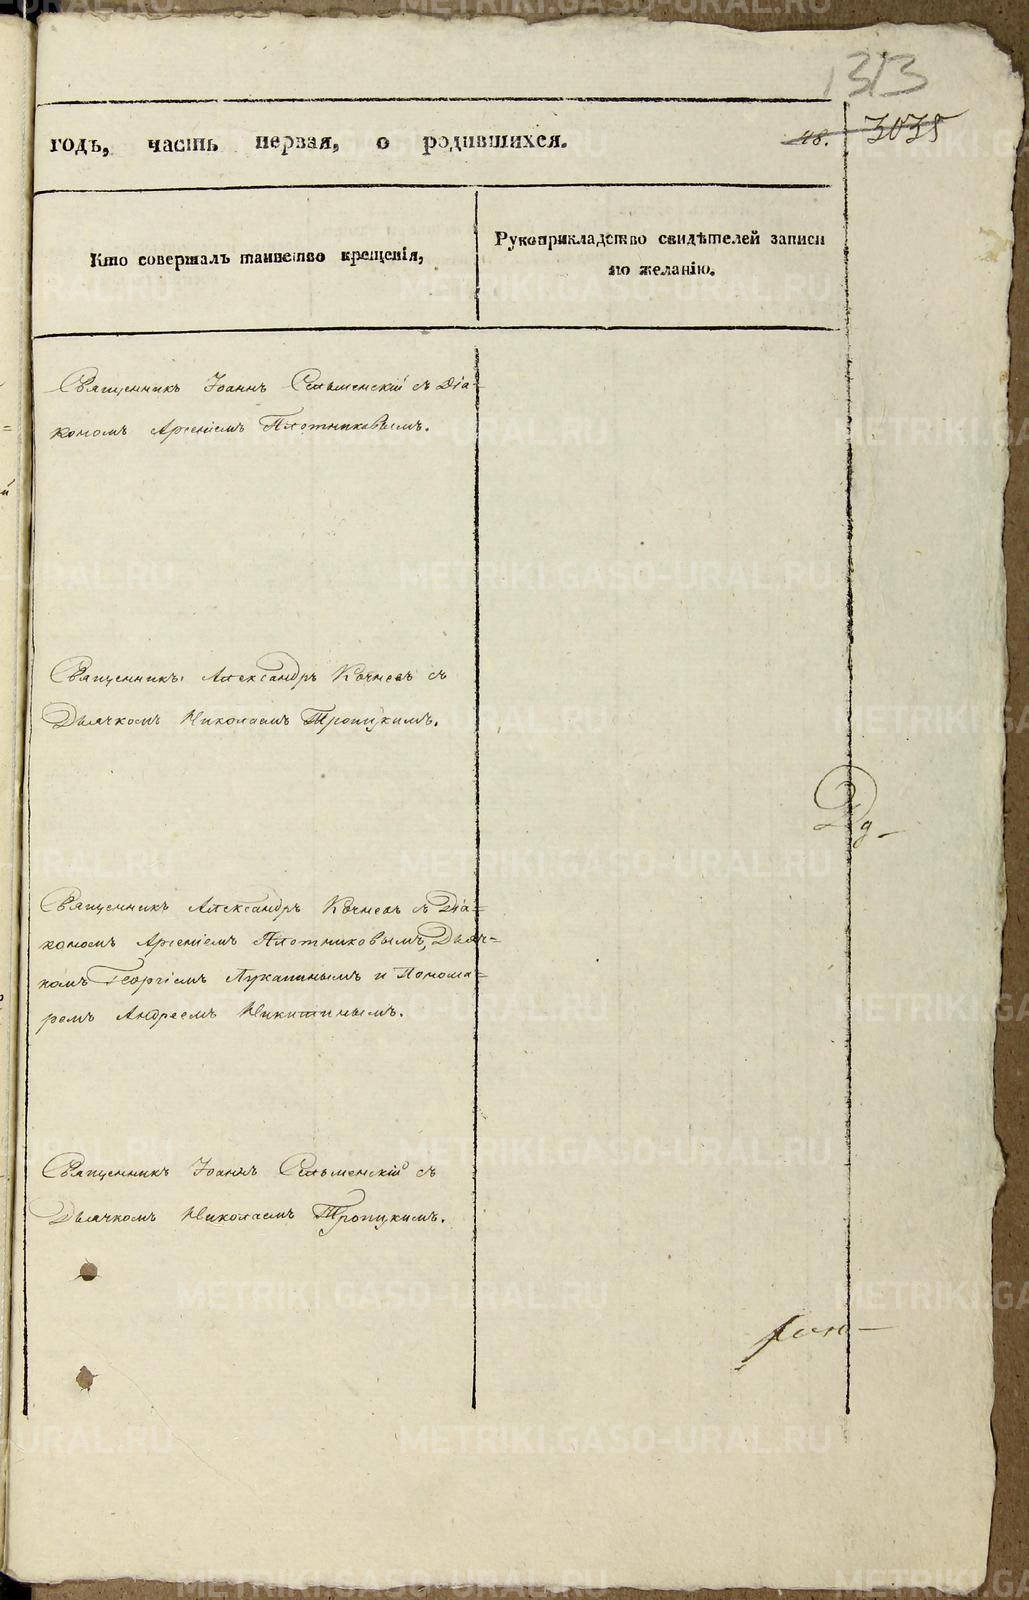 1313
годъ, часть первая, о родившихся.
48. 3035
Кто совершалъ таинство крещенія,
Рукоприкладство свидѣтелей записи
по желанію.
Священникъ Іоаннъ Сельменскій съ Діа-
кономъ Арсеніемъ Плотниковымъ.
Священникъ Александръ Кочневъ съ
Дьячкомъ Николаемъ Троицкимъ.
Священникъ Александръ Кочневъ съ Діа=
кономъ Арсеніемъ Плотниковымъ, Дьяч=
комъ Георгіемъ Лукапинымъ и Понома=
ремъ Андреемъ Никитинымъ.
Священникъ Іоаннъ Сельменскій съ
Дьячкомъ Николаемъ Троицкимъ.
METRIKI.GASO-URAL.RU